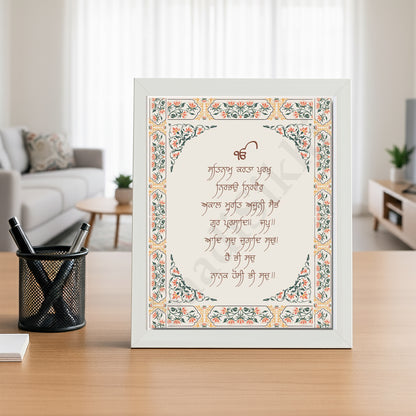 ੴ
ਸਤਿਨਾਮੁ ਕਰਤਾ ਪੁਰਖੁ
ਨਿਰਭਉ ਨਿਰਵੈਰੁ
ਅਕਾਲ ਮੂਰਤਿ ਅਜੂਨੀ ਸੈਭੰ
ਗੁਰ ਪ੍ਰਸਾਦਿ॥ ਜਪੁ॥
ਆਦਿ ਸਚੁ ਜੁਗਾਦਿ ਸਚੁ॥
ਹੈ ਭੀ ਸਚੁ
ਨਾਨਕ ਹੋਸੀ ਭੀ ਸਚੁ॥